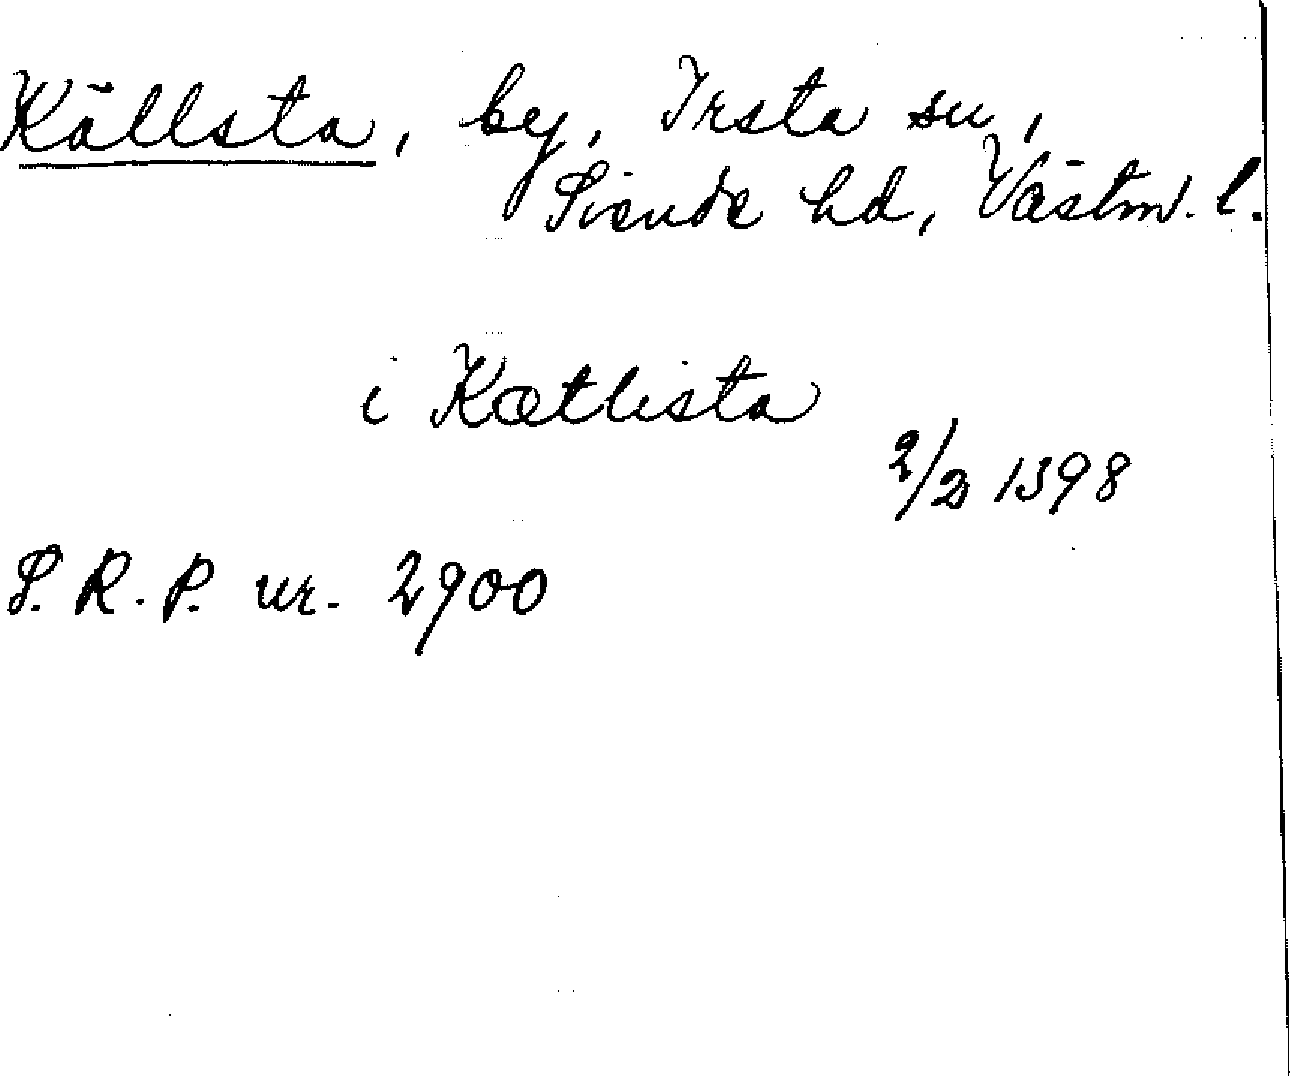 Källsta, by, Irsta sn,
Siende hd, Västm. l.
i Kætlista
2/2 1398
S. R. P. nr. 2900